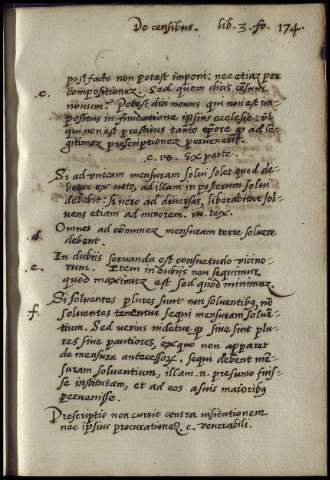 De censibus. lib. 3. fo. 174.
post facto non potest imponi: nec etiaz per
c. compositionez. Sed quem dicis censum
novum? Potest dici novus qui non est im-
positus in fundatione ipsius ecclesie: vl
qui non est prestitus tanto tpore q ad le-
gitimaz prescriptionez pervenerit.
Ex parte.
Si ad unicam mensuram solvi solet quod de-
betur ex voto, ad illam in posterum solvi
debebit: si vero ad diversas, liberabitur sol-
vens etiam ad minorem.
d. Omnes ad cõmunez mensuram terre solvere
debent.
In dubijs servanda est consuetudo vicino-
e. rum. Item in dubijs non sequimur
quod maximuz est sed quod minimuz
f. Si solventes plures sunt non solventibus, nõ
solventes tenentur sequi mensuram solven-
tium. Sed verius videtur q sive sint plu-
res sive pautiores, ex quo non apparet
de mensura antecessor. sequi debent me-
suram solventium, illam .n. presumo fuis-
se institutam, et ad eos a suis maioribus
pervenisse.
Prescriptio non currit contra visitationem
nec ipsius procurationez. c. venerabili.